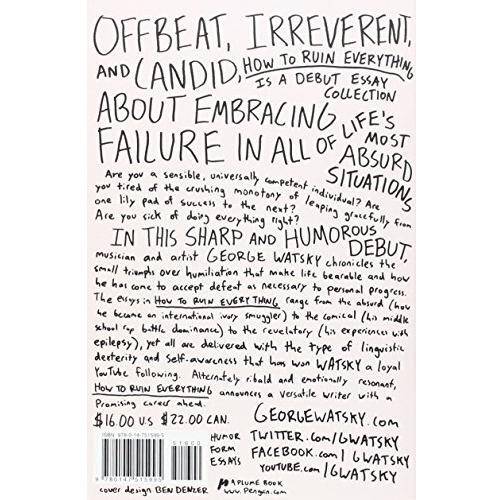 OFFBEAT, IRREVERENT,
AND CANDID, HOW TO RUIN EVERYTHING
IS A DEBUT ESSAY
COLLECTION
ABOUT EMBRACING
FAILURE IN ALL OF LIFE'S
MOST
ABSURD
SITUATIONS
Are you a sensible, universally competent individual? Are
you tired of the crushing monotony of leaping gracefully from
one lily pad of success to the next?
Are you sick of doing everything right?
IN THIS SHARP AND HUMOROUS
DEBUT,
musician and artist GEORGE WATSKY chronicles the
small triumphs over humiliation that make life bearable and how
he has come to accept defeat as necessary to personal progress.
The essays in HOW TO RUIN EVERYTHING range from the absurd (how
he became an international ivory smuggler) to the comical (his middle
school rap battle dominance) to the revelatory (his experiences with
epilepsy), yet all are delivered with the type of linguistic
dexterity and self-awareness that has won WATSKY a loyal
YouTube following. Alternately ribald and emotionally resonant,
HOW TO RUIN EVERYTHING announces a versatile writer with a
Promising career ahead.
$16.00 U.S $22.00 CAN.
GEORGEWATSKY.com
ISBN 978-0-14-751599-5
51600
9 780147 515995
HUMOR
FORM
ESSAYS
TWITTER.com/GWATSKY
FACEBOOK.com/GWATSKY
YOUTUBE.com/GWATSKY
cover design BEN DENZER
A PLUME BOOK
www.Penguin.com